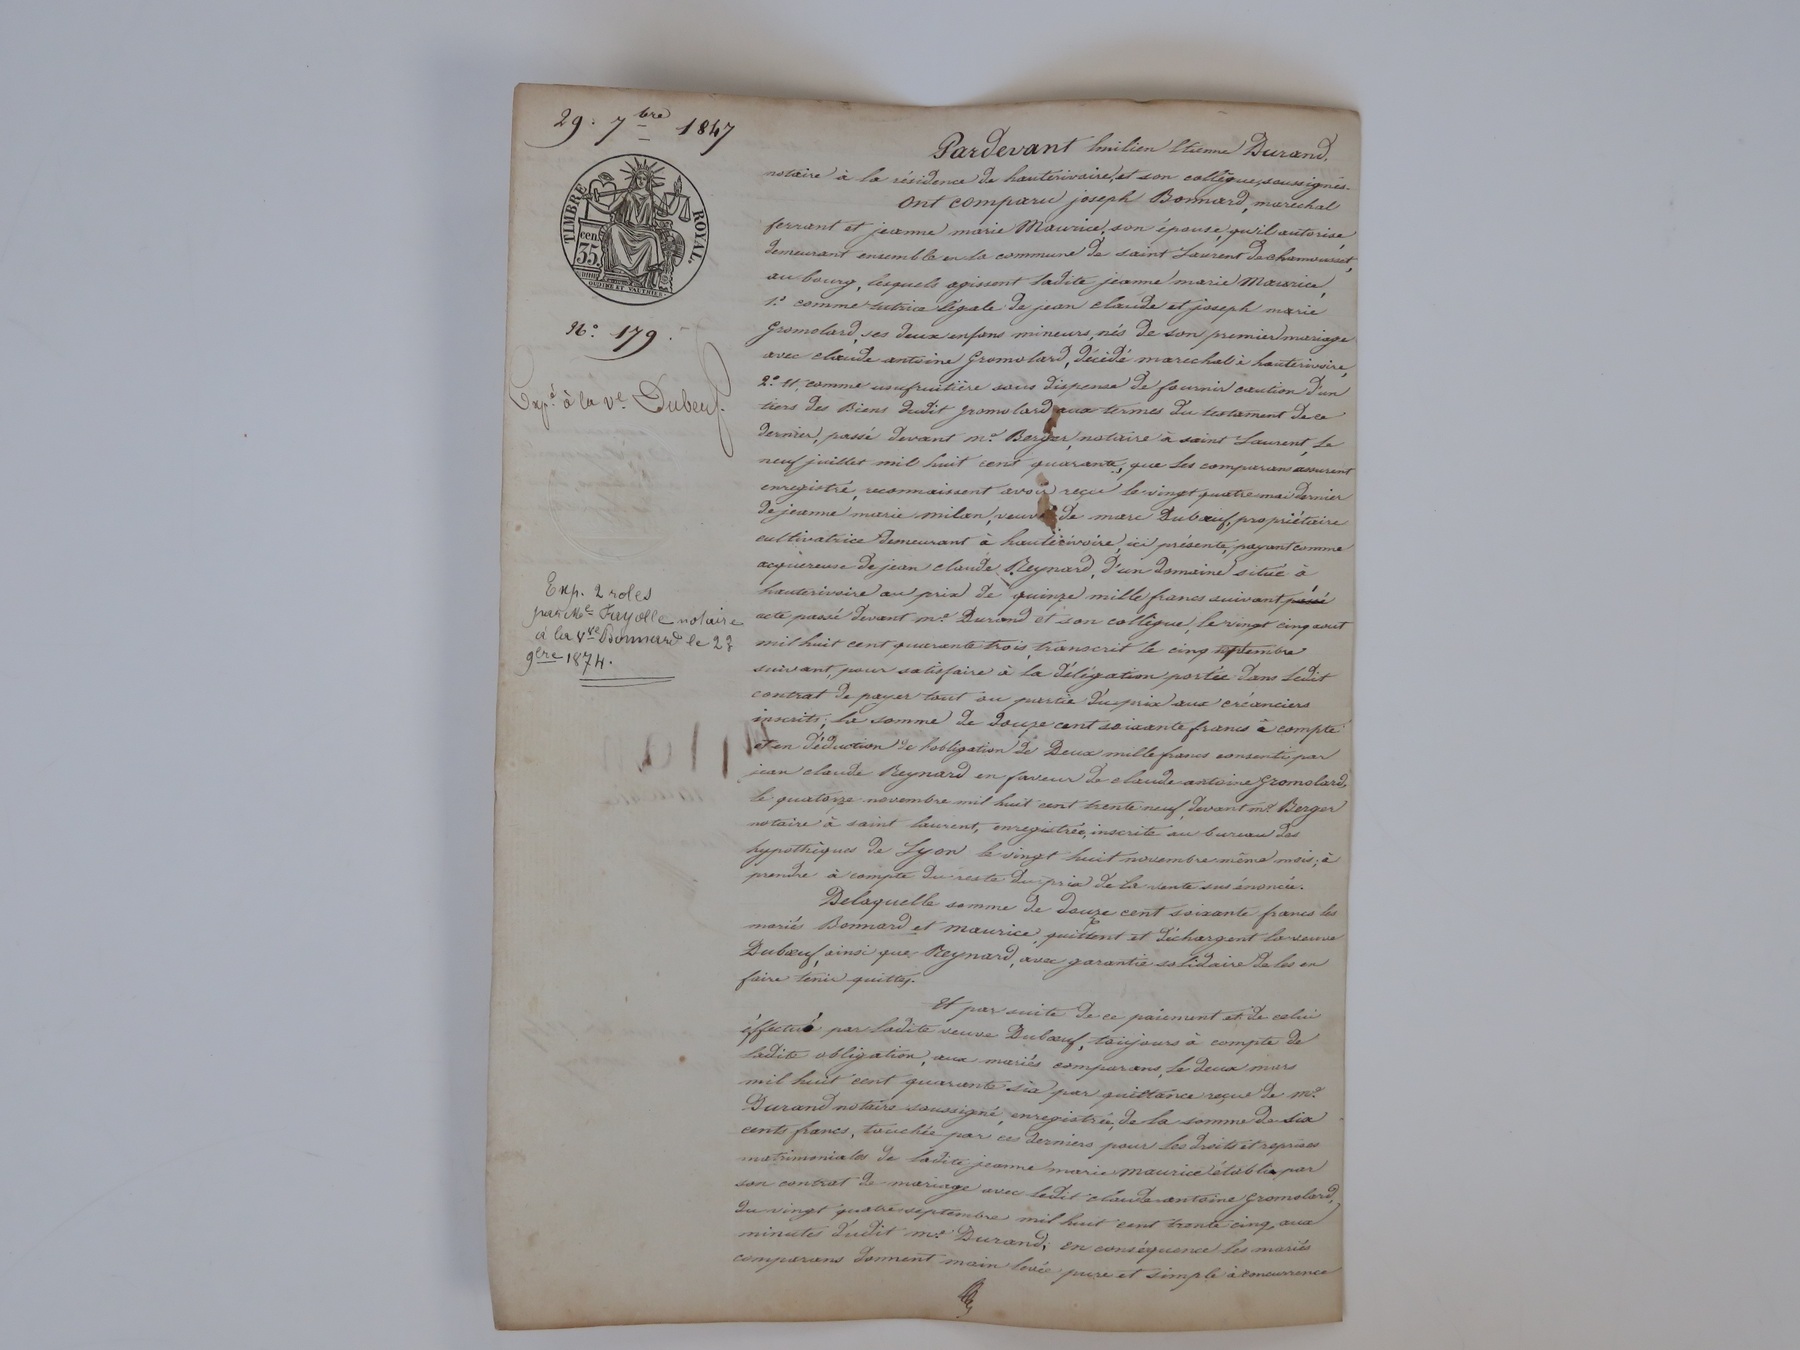 29. 7bre 1847
TIMBRE ROYAL.
cen.
35.
OUDINE ET VAUTHIER.
N.° 179.
Exp.é à la v.e Dubeuf.
Exp. 2 roles
par Me Fayolle notaire
à la Vve Bonnard le 23
9bre 1874.
Pardevant Emilien Etienne Durand,
notaire à la résidence de hauterivoire, et son collègue, soussignés.
Ont comparu joseph Bonnard, marechal
ferrant et jeanne marie Maurice, son épouse, qu'il autorise,
demeurant ensemble en la commune de saint Laurent de chamousset,
au bourg, lesquels agissent ladite jeanne marie Maurice,
1.° comme tutrice légale de jean claude et joseph marie
Gromolard, ses deux enfans mineurs, nés de son premier mariage
avec claude antoine Gromolard, décédé marechal à hauterivoire,
2.° et comme usufruitière sous dispense de fournir caution d'un
tiers des Biens dudit Gromolard aux termes du testament de ce
dernier, passé devant m.e Berger, notaire à saint Laurent, le
neuf juillet mil huit cent quarante, que les comparans assurent
enregistré, reconnaissent avoir reçu le vingt quatre mai dernier
de jeanne marie milan, veuve de marc Dubœuf, propriétaire
cultivatrice demeurant à hauterivoire, ici présente, payant comme
acquereuse de jean claude Reynard, d'un domaine situé à
hauterivoire au prix de quinze mille francs suivant passé
acte passé devant m.e Durand et son collègue, le vingt cinq aout
mil huit cent quarante trois, transcrit le cinq septembre
suivant, pour satisfaire à la délégation portée dans ledit
contrat de payer tout ou partie du prix aux créanciers
inscrits; la somme de douze cent soixante francs à compte
et en déduction de l'obligation de Deux mille francs consentie par
jean claude Reynard en faveur de claude antoine Gromolard,
le quatorze novembre mil huit cent trente neuf, devant m.e Berger
notaire à saint laurent, enregistrée, inscrite au bureau des
hypothèques de Lyon le vingt huit novembre même mois; à
prendre à compte du reste du prix de la vente sus énoncée.
Delaquelle somme de douze cent soixante francs les
mariés Bonnard et Maurice, quittent et déchargent la veuve
Dubœuf, ainsi que Reynard, avec garantie solidaire de les en
faire tenir quittes.
Et par suite de ce paiement et de celui
éffectué par ladite veuve Dubœuf, toujours à compte de
ladite obligation, aux mariés comparans, le deux mars
mil huit cent quarante six par quittance reçue de m.e
Durand notaire soussigné, enregistrée, de la somme de six
cents francs, touchée par ces derniers pour les droits et reprises
matrimoniales de ladite jeanne marie Maurice établis par
son contrat de mariage avec ledit claude antoine Gromolard,
du vingt quatre septembre mil huit cent trente cinq, aux
minutes dudit m.e Durand; en conséquence les mariés
comparans donnent main levée pure et simple à concurrence